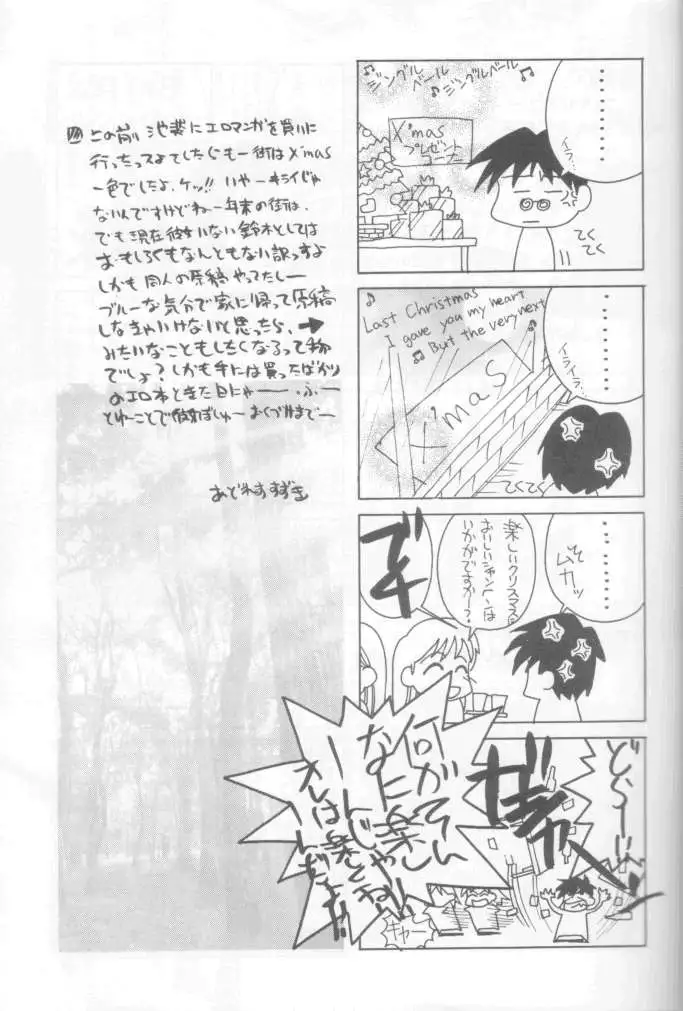 この前、池袋にエロマンガを買いに
行ったってよてしたらも一街はX'mas
一色でしたよ、ケッ!! いやーキライじゃ
ないんですけどねー年末の街は、
でも現在彼女いない鈴木としては
おもしろくもなんともない訳っすよ
しかも同人の原稿やってたしー
ブルーな気分で家に帰って原稿
しなきゃいけないと思ったら、➔
みたいなこともしたくなるって物
でしょ?しかも手には買ったばかり
のエロ本ときた日にゃー――、ふー
あどれすすずき
♪ジングル
ベール
♪ジングルベール♪
X'mas
プレゼント
コーナー
・・・・・・・
イラ・・
てくてく
♪Last Christmas
I gave you my heart
♪But the very next
X'mas
・・・・・・・
イライラ・・
てくてく
・・・・・・・
ムカッ
楽しいクリスマスに
おいしいシャンペンは
いかがですかー?
何がそんなに楽しーんじゃ
オレは楽しくねーんだよ!!
キャー